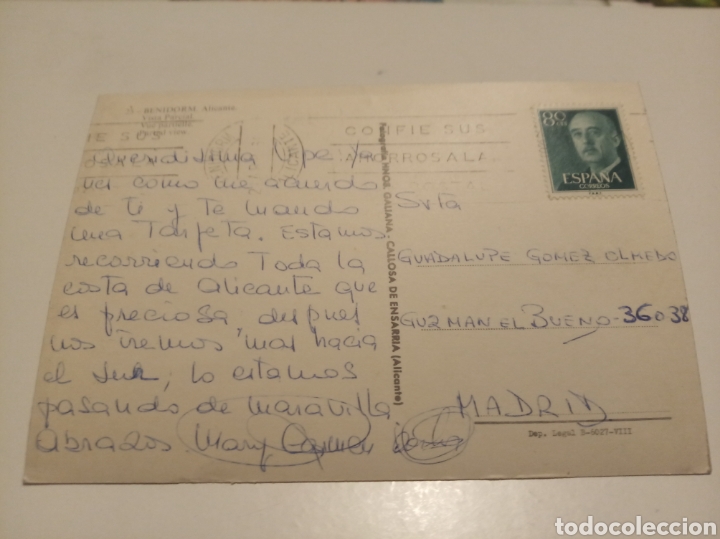 BENIDORM, Alicante
Vista Parcial
CONFIE SUS
AHORROS A LA
80
CTS
ESPAÑA
CORREOS
Queridísima Lupe, Ya
ves como me acuerdo
de ti y te mando
una Tarjeta. Estamos
recorriendo Toda la
costa de Alicante que
es preciosa, despues
nos iremos mas hacia
el sur, lo estamos
pasando de maravilla
Abrazos. Mary Carmen
Fotografía HNOS. GALIANA - CALLOSA DE ENSARRIA (Alicante)
Srta
GUADALUPE GOMEZ OLMEDO
GUZMAN EL BUENO - 36 o 38
MADRID
Dep. Legal B-8027-VIII
todocoleccion